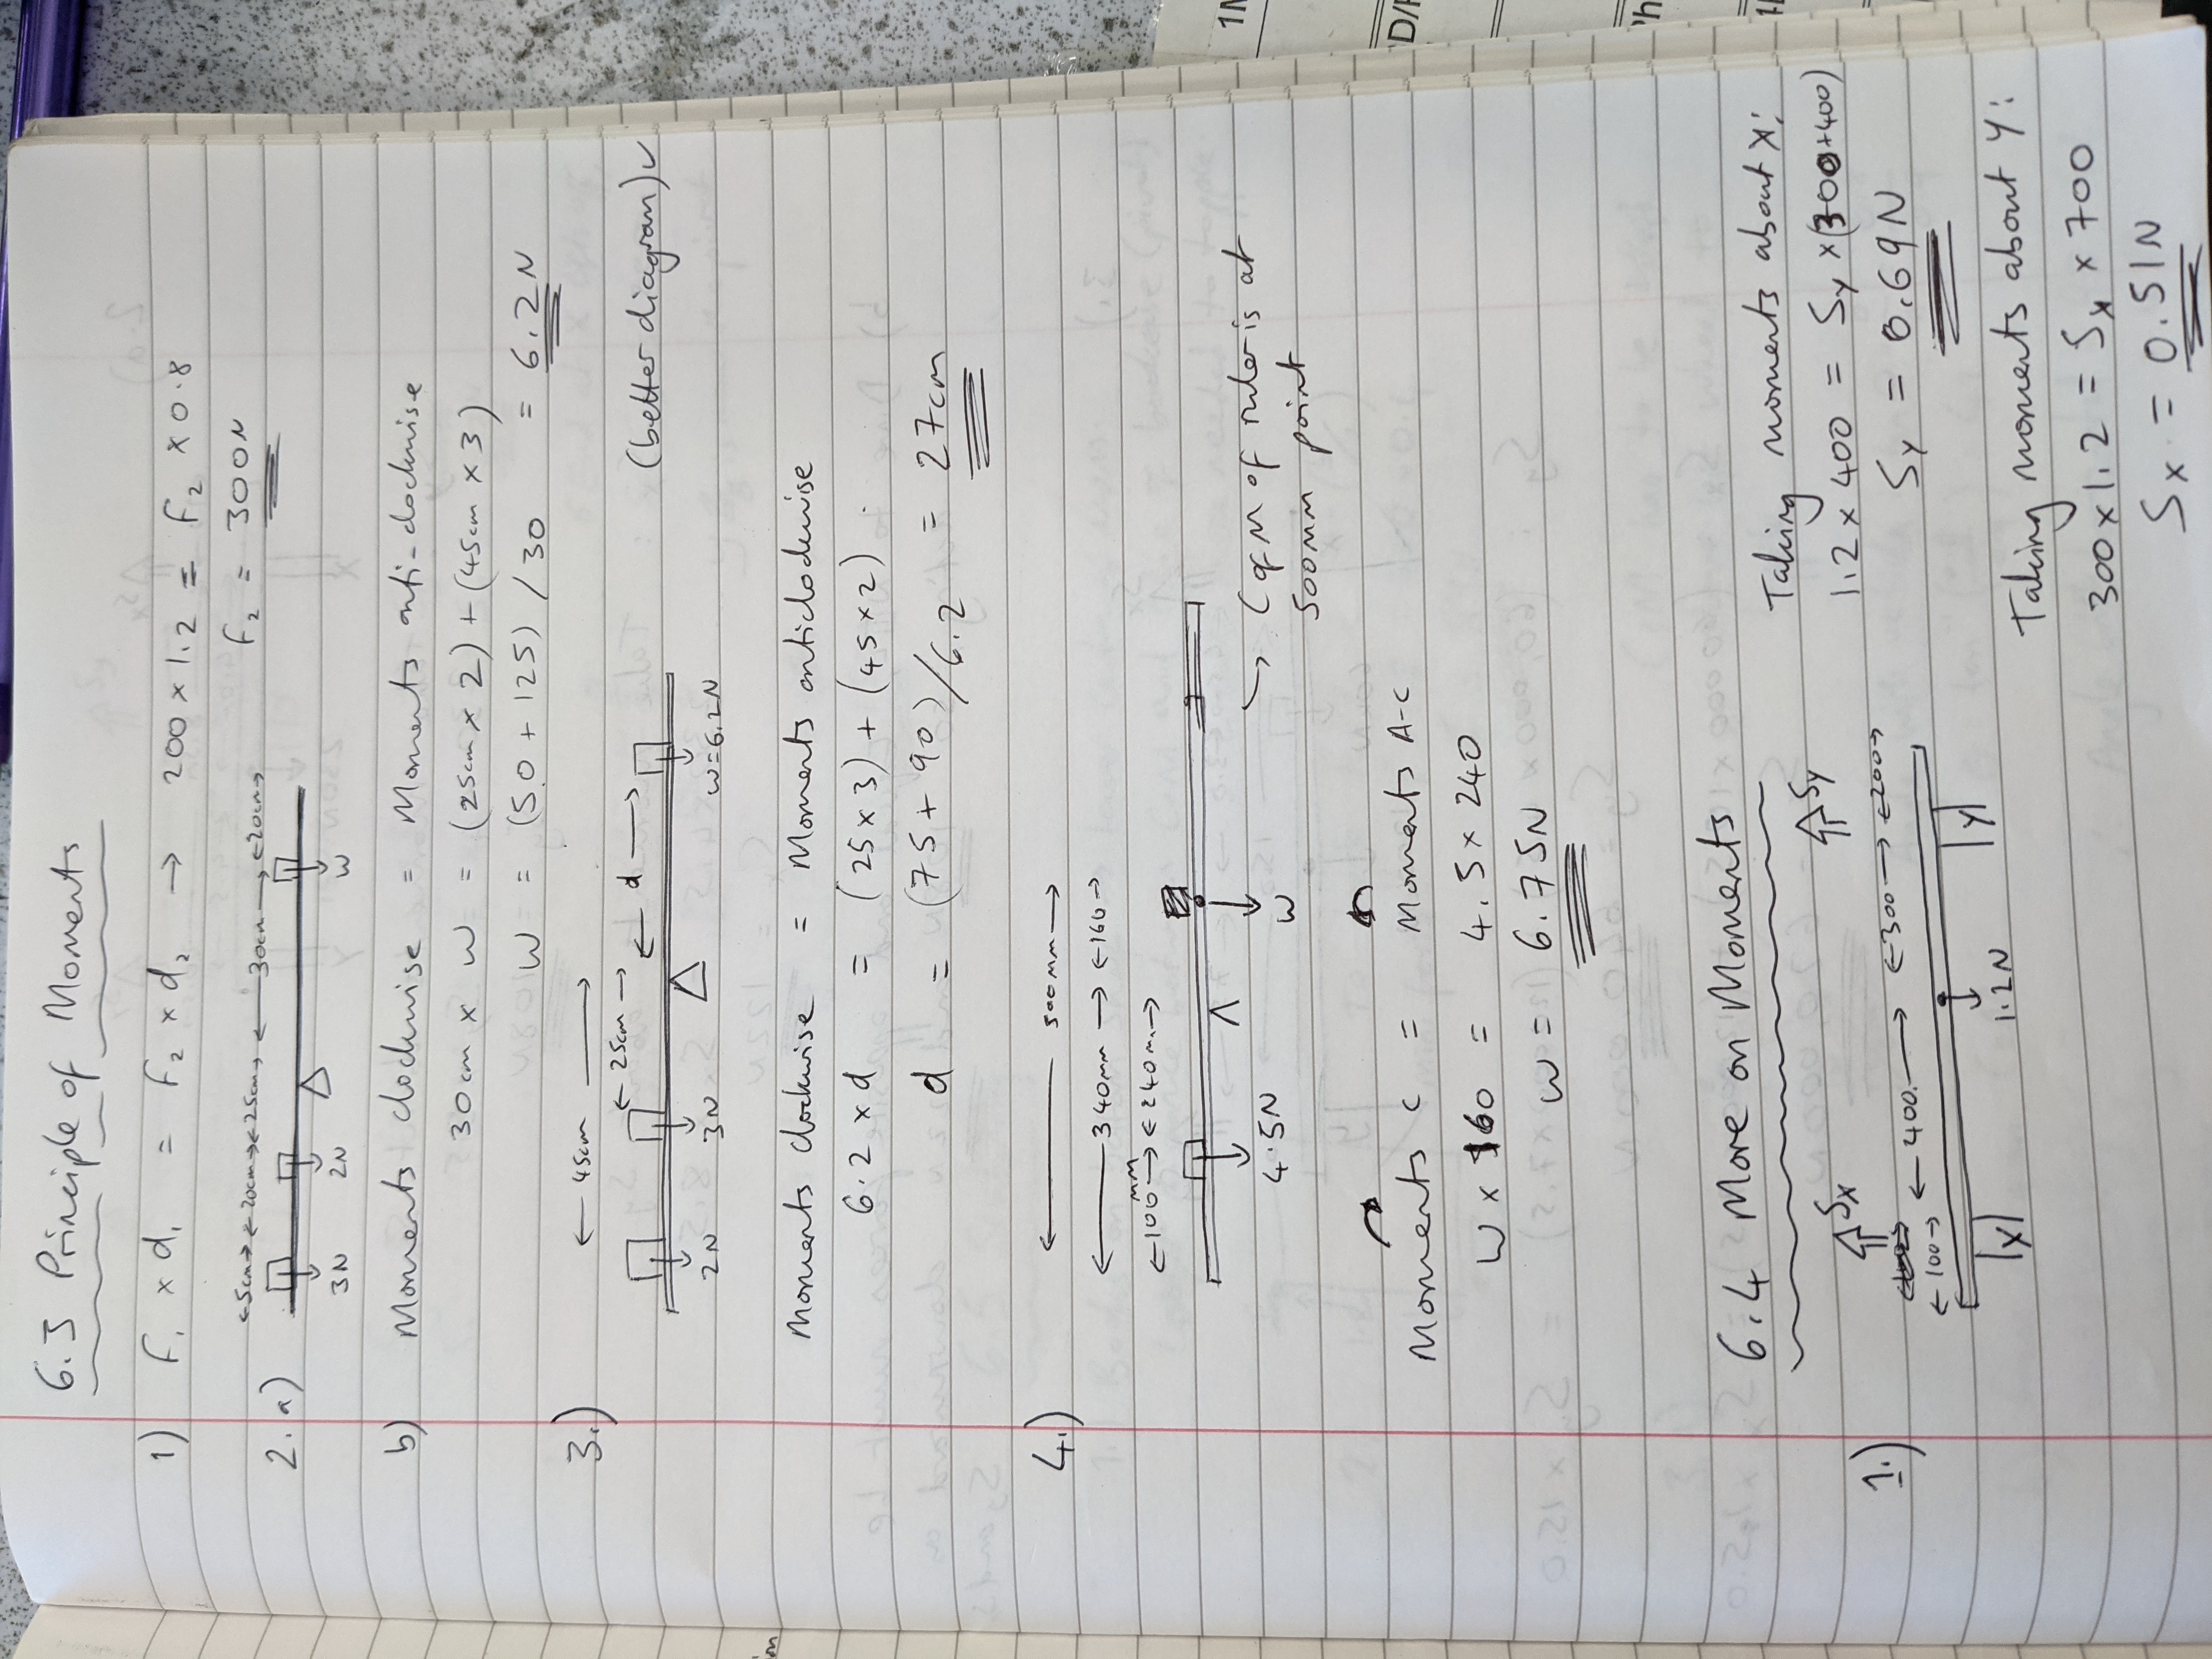 6.3 Principle of Moments
1) F₁ x d₁ = F₂ x d₂ → 200 x 1.2 = F₂ x 0.8
F₂ = 300N
2.a) ←5cm→←20cm→←25cm→←30cm→←20cm→
3N 2N W
b) Moments clockwise = Moments anti-clockwise
30cm x W = (25cm x 2) + (45cm x 3)
W = (50 + 125) / 30 = 6.2N
3.) ←45cm→
←25cm→ ←d→ (better diagram)
2N 3N W=6.2N
Moments clockwise = Moments anticlockwise
6.2 x d = (25 x 3) + (45 x 2)
d = (75 + 90)/6.2 = 27cm
4.) ←500mm→
←340mm→←160→
←100mm→←240mm→
4.5N W
→ C of M of ruler is at
500mm point
Moments C = Moments A-C
W x 160 = 4.5 x 240
W = 6.75N
6.4 More on Moments
1.) Sx Sy
←100→←400→←300→←200→
X 1.2N Y
Taking moments about X:
1.2 x 400 = Sy x (300+400)
Sy = 0.69N
Taking moments about Y:
300 x 1.2 = Sx x 700
Sx = 0.51N
1M
D/P
Ph